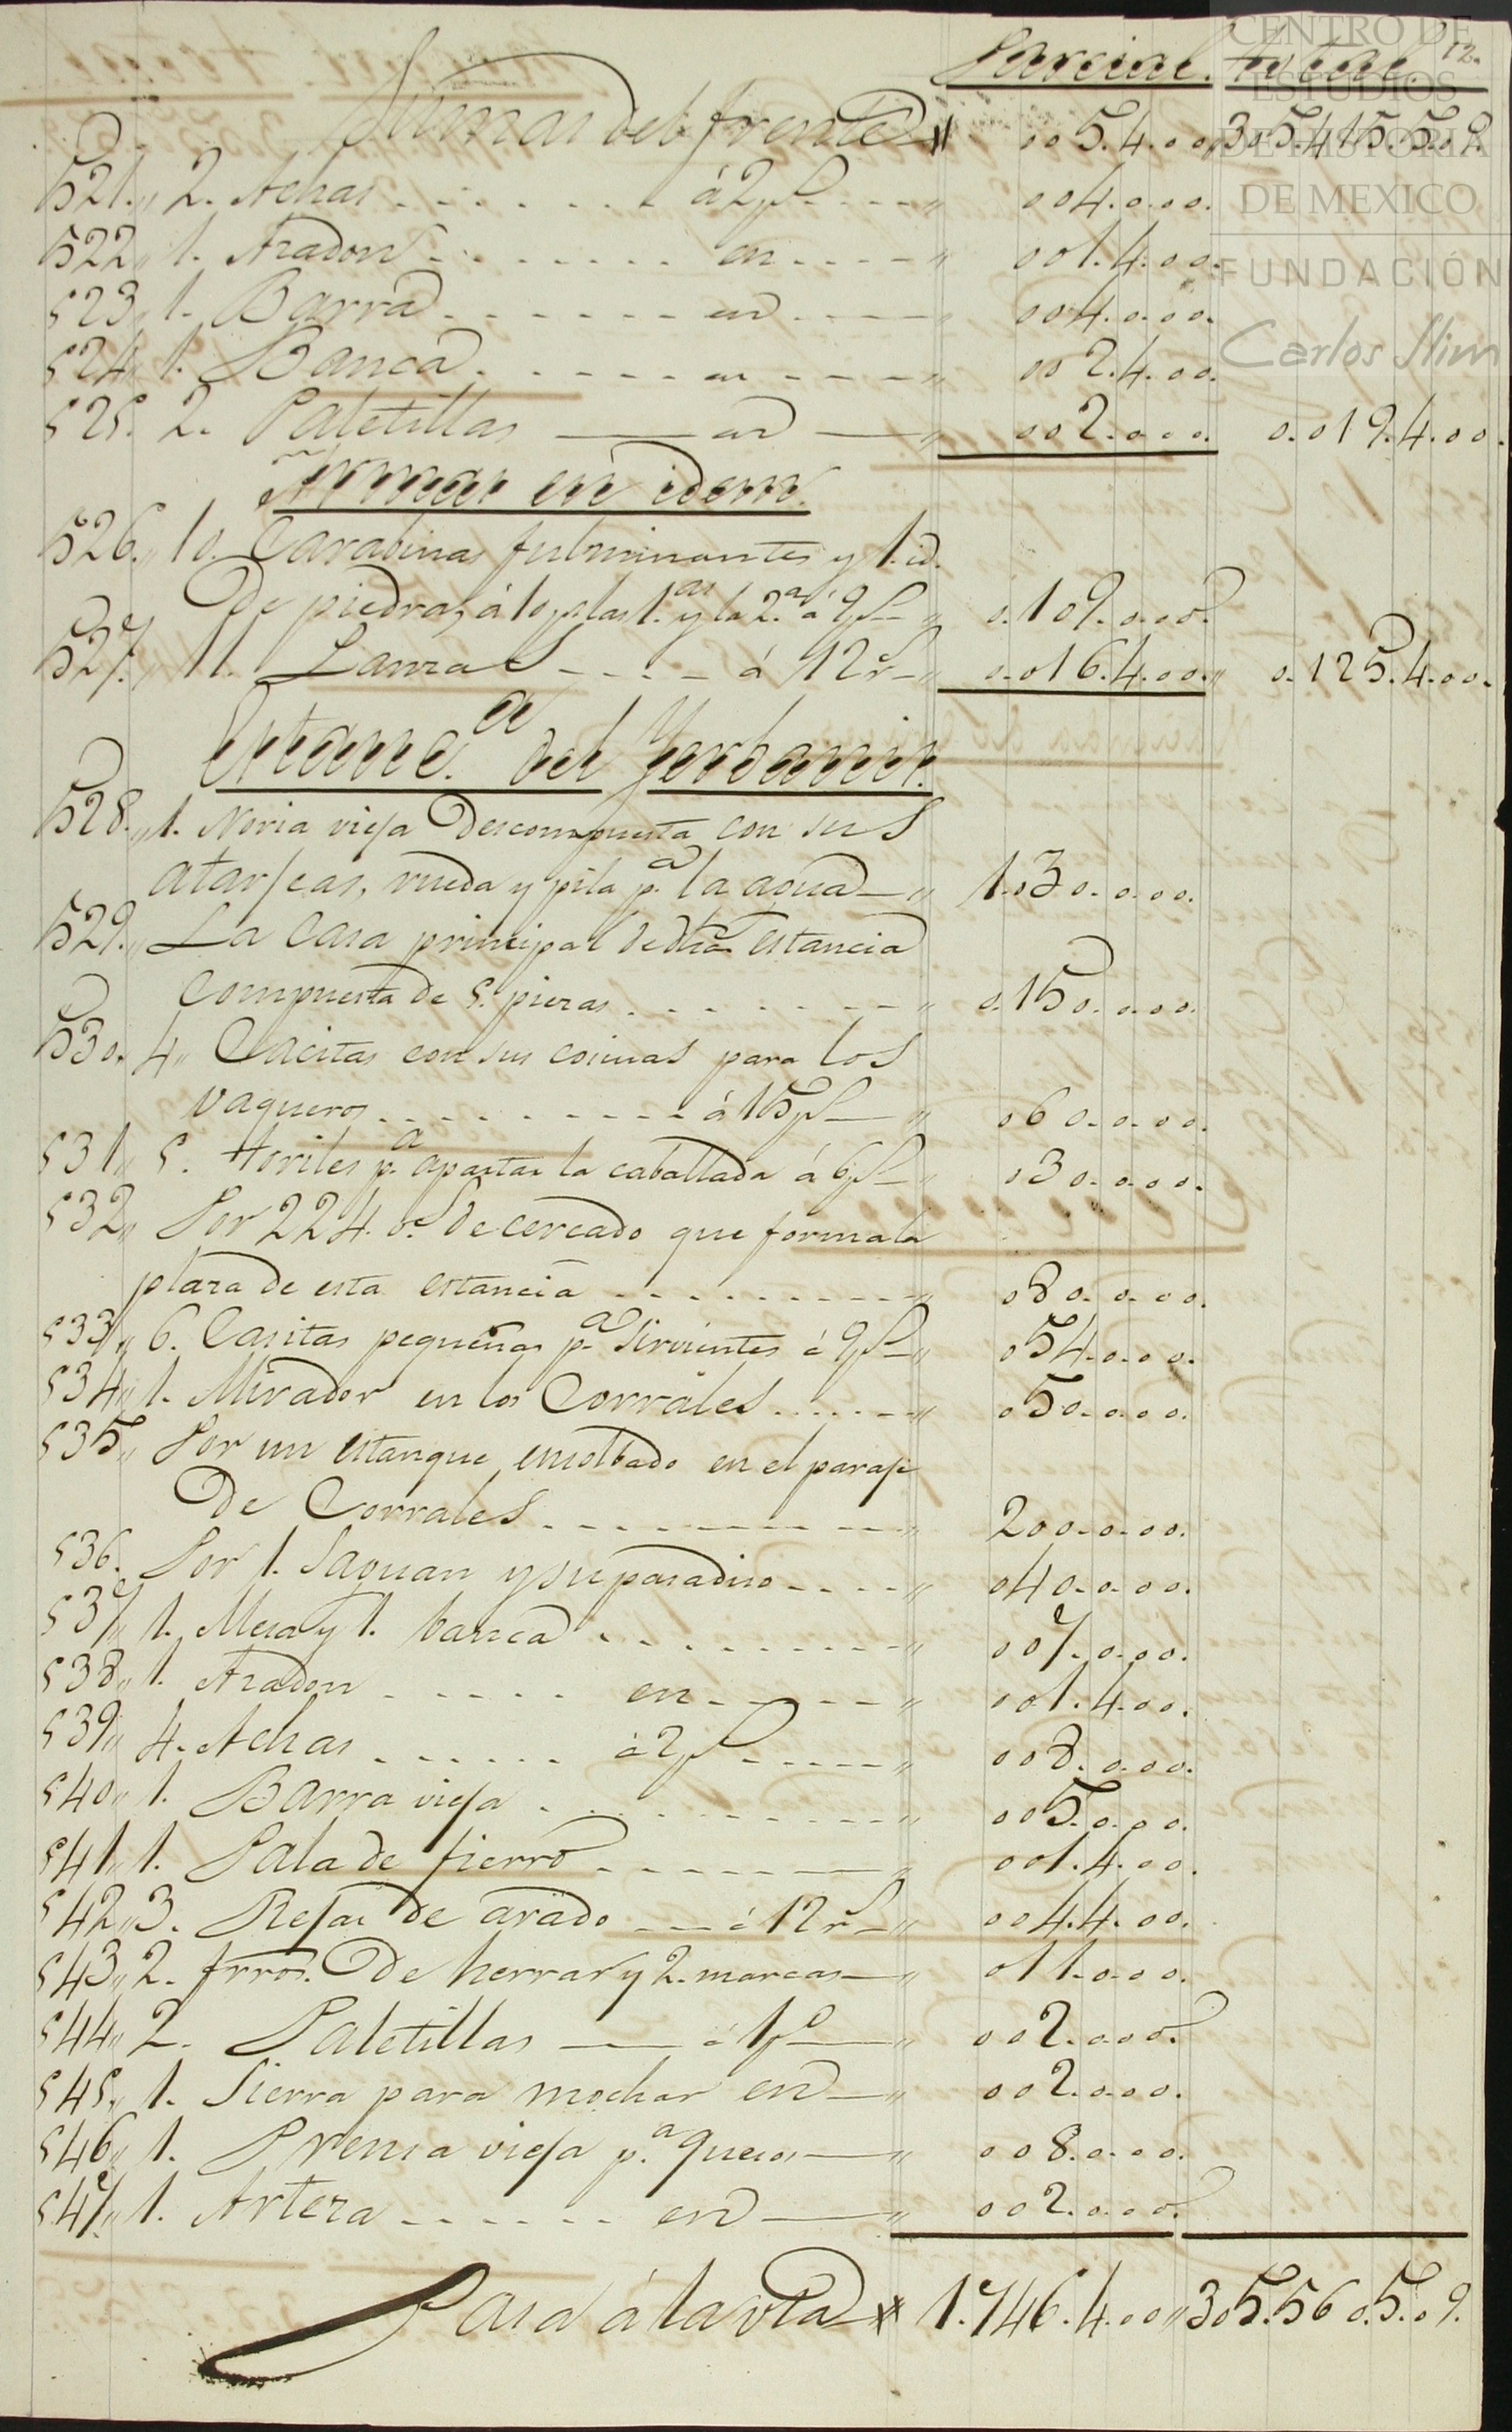 Parcial. total. 12.
Sumas del frente 005.4.00 305.415.5.09.
521. 2. Achas á 2 ps 004.0.00.
522 1. Azadon en 001.4.00.
523 1. Barra en 004.0.00.
524 1. Banca en 002.4.00.
525. 2. Paletillas en 002.0.00. 0.019.4.00.
Armas en idem.
526. 10. Carabinas fulminantes y 1. id.
de piedra, á 10 ps las 1.as y la 2.a á 9 ps 0.109.0.00.
527. 11. Lanzas á 12 r 0.016.4.00. 0.125.4.00.
Estanc.a del
528. 1. Noria vieja descompuesta con sus
atarjeas, rueda y pila p.a la agua 1.030.0.00.
529. La Casa principal de dha estancia
compuesta de 5. piezas 0.150.0.00.
530. 4 Cacitas con sus cosinas para los
vaqueros á 15 ps 060.0.00.
531 5. Toriles p.a apartar la caballada á 6 ps 030.0.00.
532 Por 224. v.s de cercado que forma la
plaza de esta estancia 080.0.00.
533 6. Casitas pequeñas p.a Sirvientes á 9 ps 054.0.00.
534 1. Mirador en los Corrales 050.0.00.
535 Por un estanque ensolbado en el paraje
de Corrales 200.0.00.
536. Por 1. Saguan y su paradiso 040.0.00.
537 1. Mesa y 1. banca 007.0.00.
538 1. Azadon en 001.4.00.
539 4. Achas á 2 ps 008.0.00.
540 1. Barra vieja 005.0.00.
541 1. Pala de fierro 001.4.00.
542 3. Rejas de arado á 12 r 004.4.00.
543 2. frros. de herrar y 2. marcas 011.0.00.
544 2. Paletillas á 1 p 002.0.00.
545. 1. Sierra para mochar en 002.0.00.
546 1. Prensa vieja p.a quesos 008.0.00.
547 1. Arteza en 002.0.00.
Pasa á la vta 1.746.4.00 305.560.5.09.
CENTRO DE
ESTUDIOS
DE HISTORIA
DE MEXICO
FUNDACIÓN
Carlos Slim